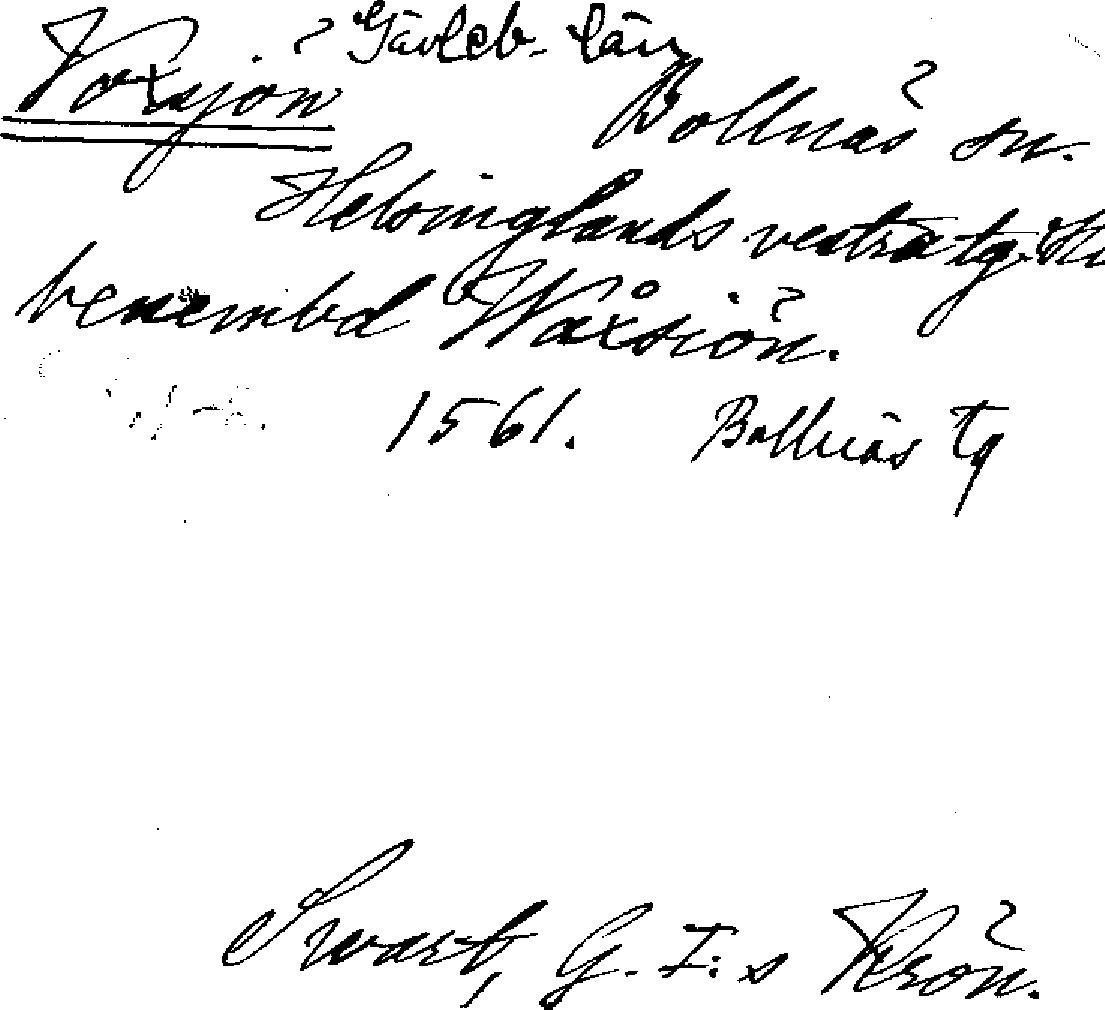 Voxsjön Gävleb. län
Bollnäs sn.
Helsinglands vestra tg.
benembd Wåxsiön.
1561. Bollnäs tg
Swart, G. I:s Krön.